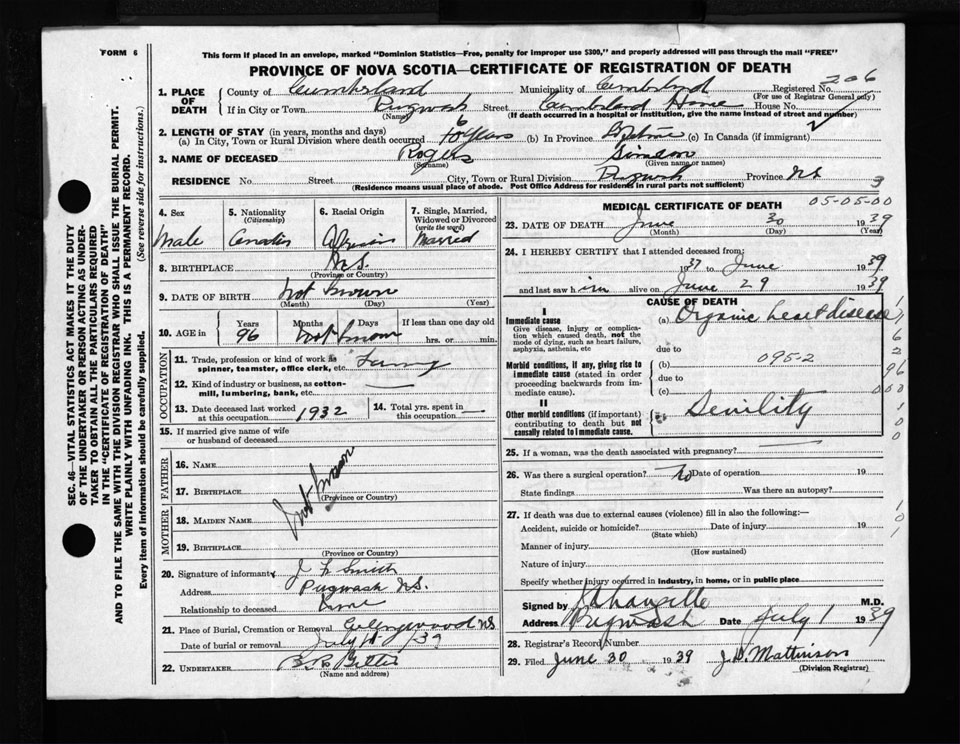 FORM 6
This form if placed in an envelope, marked "Dominion Statistics—Free, penalty for improper use $300," and properly addressed will pass through the mail "FREE"
PROVINCE OF NOVA SCOTIA—CERTIFICATE OF REGISTRATION OF DEATH
206
1. PLACE OF DEATH
County of Cumberland Municipality of Cumberland Registered No.
(For use of Registrar General only)
If in City or Town Pugwash Street Cumberland Home House No.
(Name) (If death occurred in a hospital or institution, give the name instead of street and number)
2. LENGTH OF STAY (in years, months and days)
(a) In City, Town or Rural Division where death occurred years (b) In Province Lifetime (c) In Canada (if immigrant)
3. NAME OF DECEASED Rogers Simeon
(Surname) (Given name or names)
RESIDENCE No. Street City, Town or Rural Division Pugwash Province N.S.
(Residence means usual place of abode. Post Office Address for residents in rural parts not sufficient)
SEC. 46—VITAL STATISTICS ACT MAKES IT THE DUTY
OF THE UNDERTAKER OR PERSON ACTING AS UNDER-
TAKER TO OBTAIN ALL THE PARTICULARS REQUIRED
IN THE "CERTIFICATE OF REGISTRATION OF DEATH"
AND TO FILE THE SAME WITH THE DIVISION REGISTRAR WHO SHALL ISSUE THE BURIAL PERMIT.
WRITE PLAINLY WITH UNFADING INK. THIS IS A PERMANENT RECORD.
Every item of information should be carefully supplied. (See reverse side for instructions.)
4. Sex
Male
5. Nationality
(Citizenship)
6. Racial Origin
7. Single, Married,
Widowed or Divorced
(write the word)
Married
8. BIRTHPLACE N.S.
(Province or Country)
9. DATE OF BIRTH Not known
(Month) (Day) (Year)
10. AGE in Years Months Days If less than one day
96 Not known hrs. or min.
OCCUPATION
11. Trade, profession or kind of work as
spinner, teamster, office clerk, etc.
12. Kind of industry or business, as cotton-
mill, lumbering, bank, etc.
13. Date deceased last worked
at this occupation 1932
14. Total yrs. spent in
this occupation
15. If married give name of wife
or husband of deceased
FATHER
16. NAME
17. BIRTHPLACE
(Province or Country)
Not known
MOTHER
18. MAIDEN NAME
19. BIRTHPLACE
(Province or Country)
20. Signature of informant J F Smith
Address Pugwash N.S.
Relationship to deceased None
21. Place of Burial, Cremation or Removal N.S.
Date of burial or removal July 1939
22. UNDERTAKER
(Name and address)
MEDICAL CERTIFICATE OF DEATH 05-05-00
3
23. DATE OF DEATH June 30 1939
(Month) (Day) (Year)
24. I HEREBY CERTIFY that I attended deceased from:
1937 to June 1939
and last saw him alive on June 29 1939
CAUSE OF DEATH
I
Immediate cause
Give disease, injury or complica-
tion which caused death, not the
mode of dying, such as heart failure,
asphyxia, asthenia, etc
(a) Organic heart disease
due to
Morbid conditions, if any, giving rise to
immediate cause (stated in order
proceeding backwards from im-
mediate cause).
(b) 095-2
due to
(c)
II
Other morbid conditions (if important)
contributing to death but not
causally related to immediate cause.
Senility
25. If a woman, was the death associated with pregnancy?
26. Was there a surgical operation? No Date of operation 19
State findings Was there an autopsy?
27. If death was due to external causes (violence) fill in also the following:—
Accident, suicide or homicide? Date of injury 19
(State which)
Manner of injury
(How sustained)
Nature of injury
Specify whether injury occurred in industry, in home, or in public place
Signed by M.D.
Address Pugwash Date July 1 1939
28. Registrar's Record Number
29. Filed June 30 1939 J.D. Mattinson
(Division Registrar)